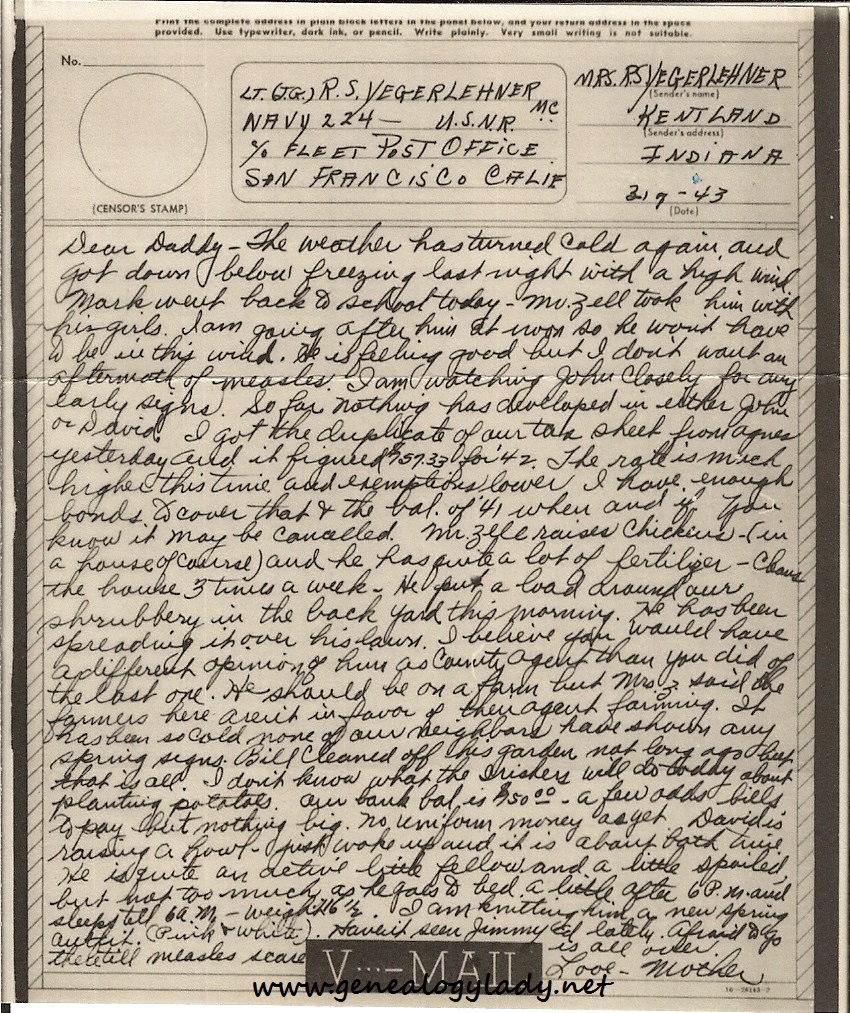 Print the complete address in plain block letters in the panel below, and your return address in the space
provided. Use typewriter, dark ink, or pencil. Write plainly. Very small writing is not suitable.
No.
(CENSOR'S STAMP)
LT. (J.G.) R.S. VEGERLEHNER MC
NAVY 224 — U.S.N.R.
c/o FLEET POST OFFICE
SAN FRANCISCO CALIF
MRS. R.S. VEGERLEHNER
(Sender's name)
KENTLAND
(Sender's address)
INDIANA
(Date)
Dear Daddy - The weather has turned cold again, and
got down below freezing last night with a high wind.
Mark went back to school today - Mr. Zell took him with
his girls. I am going after him at noon so he won't have
to be in this wind. He is feeling good but I don't want an
aftermath of measles. I am watching John closely for any
early signs. So far nothing has developed in either John
or David. I got the duplicate of our tax sheet from Agnes
yesterday and it figured $57.33 for 42. The rate is much
higher this time and exemptions lower. I have enough
bonds to cover that & the bal. of '41 when and if. You
know it may be cancelled. Mr. Zell raises chickens - (in
a house of course) and he has quite a lot of fertilizer - cleans
the house 3 times a week. He put a load around our
shrubbery in the back yard this morning. He has been
spreading it over his lawn. I believe you would have
a different opinion of him as County agent than you did of
the last one. He should be on a farm but Mrs. Z. said the
farmers here aren't in favor of their agent farming. It
has been so cold none of our neighbors have shown any
spring signs. Bill cleaned off his garden not long ago but
that is all. I don't know what the Irishers will do today about
planting potatoes. Our bank bal. is $750.00 - a few odds bills
to pay but nothing big. No uniform money as yet. David is
raising a howl - just woke up and it is about bath time.
He is quite an active little fellow and a little spoiled,
but not too much, as he goes to bed a little after 6 P.M. and
sleeps till 6 A.M. - weight 16 1/2. I am knitting him a new spring
outfit. (Pink & white). Haven't seen Jimmy Ed lately. Afraid to go
there till measles scare is all over.
Love - Mother
V···-MAIL
www.genealogylady.net